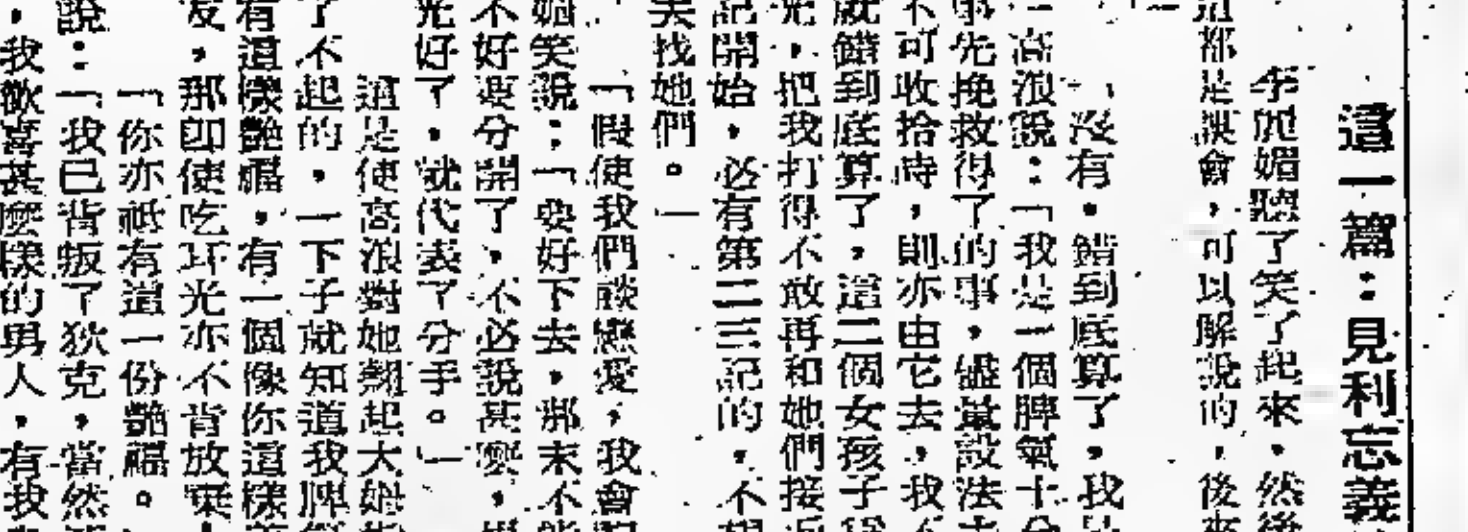 這一篇：見利忘義
李妲媚聽了笑了起來，然後
這都是誤會，可以解說的，後來
「沒有，錯到底算了，我是
高浪說：「我是一個脾氣十分
事先挽救得了的事，儘量設法去
不可收拾時，則亦由它去，我不
就錯到底算了，這二個女孩子
光，把我打得不敢再和她們接近
記開始，必有第二三記的，不想
去找她們。」
「假使我們談戀愛，我會
媚笑說：「要好下去，那末不能
不好要分開了，不必說甚麼，
光好了，就代表了分手。」
這是使高浪對她翹起大姆指
了不起的，一下子就知道我脾氣
有這樣艷福，有一個像你這樣
友，那即使吃耳光亦不肯放棄
「你亦祇有這一份艷福。
說：「我已背叛了狄克，當然
，我歡喜甚麼樣的男人，有我